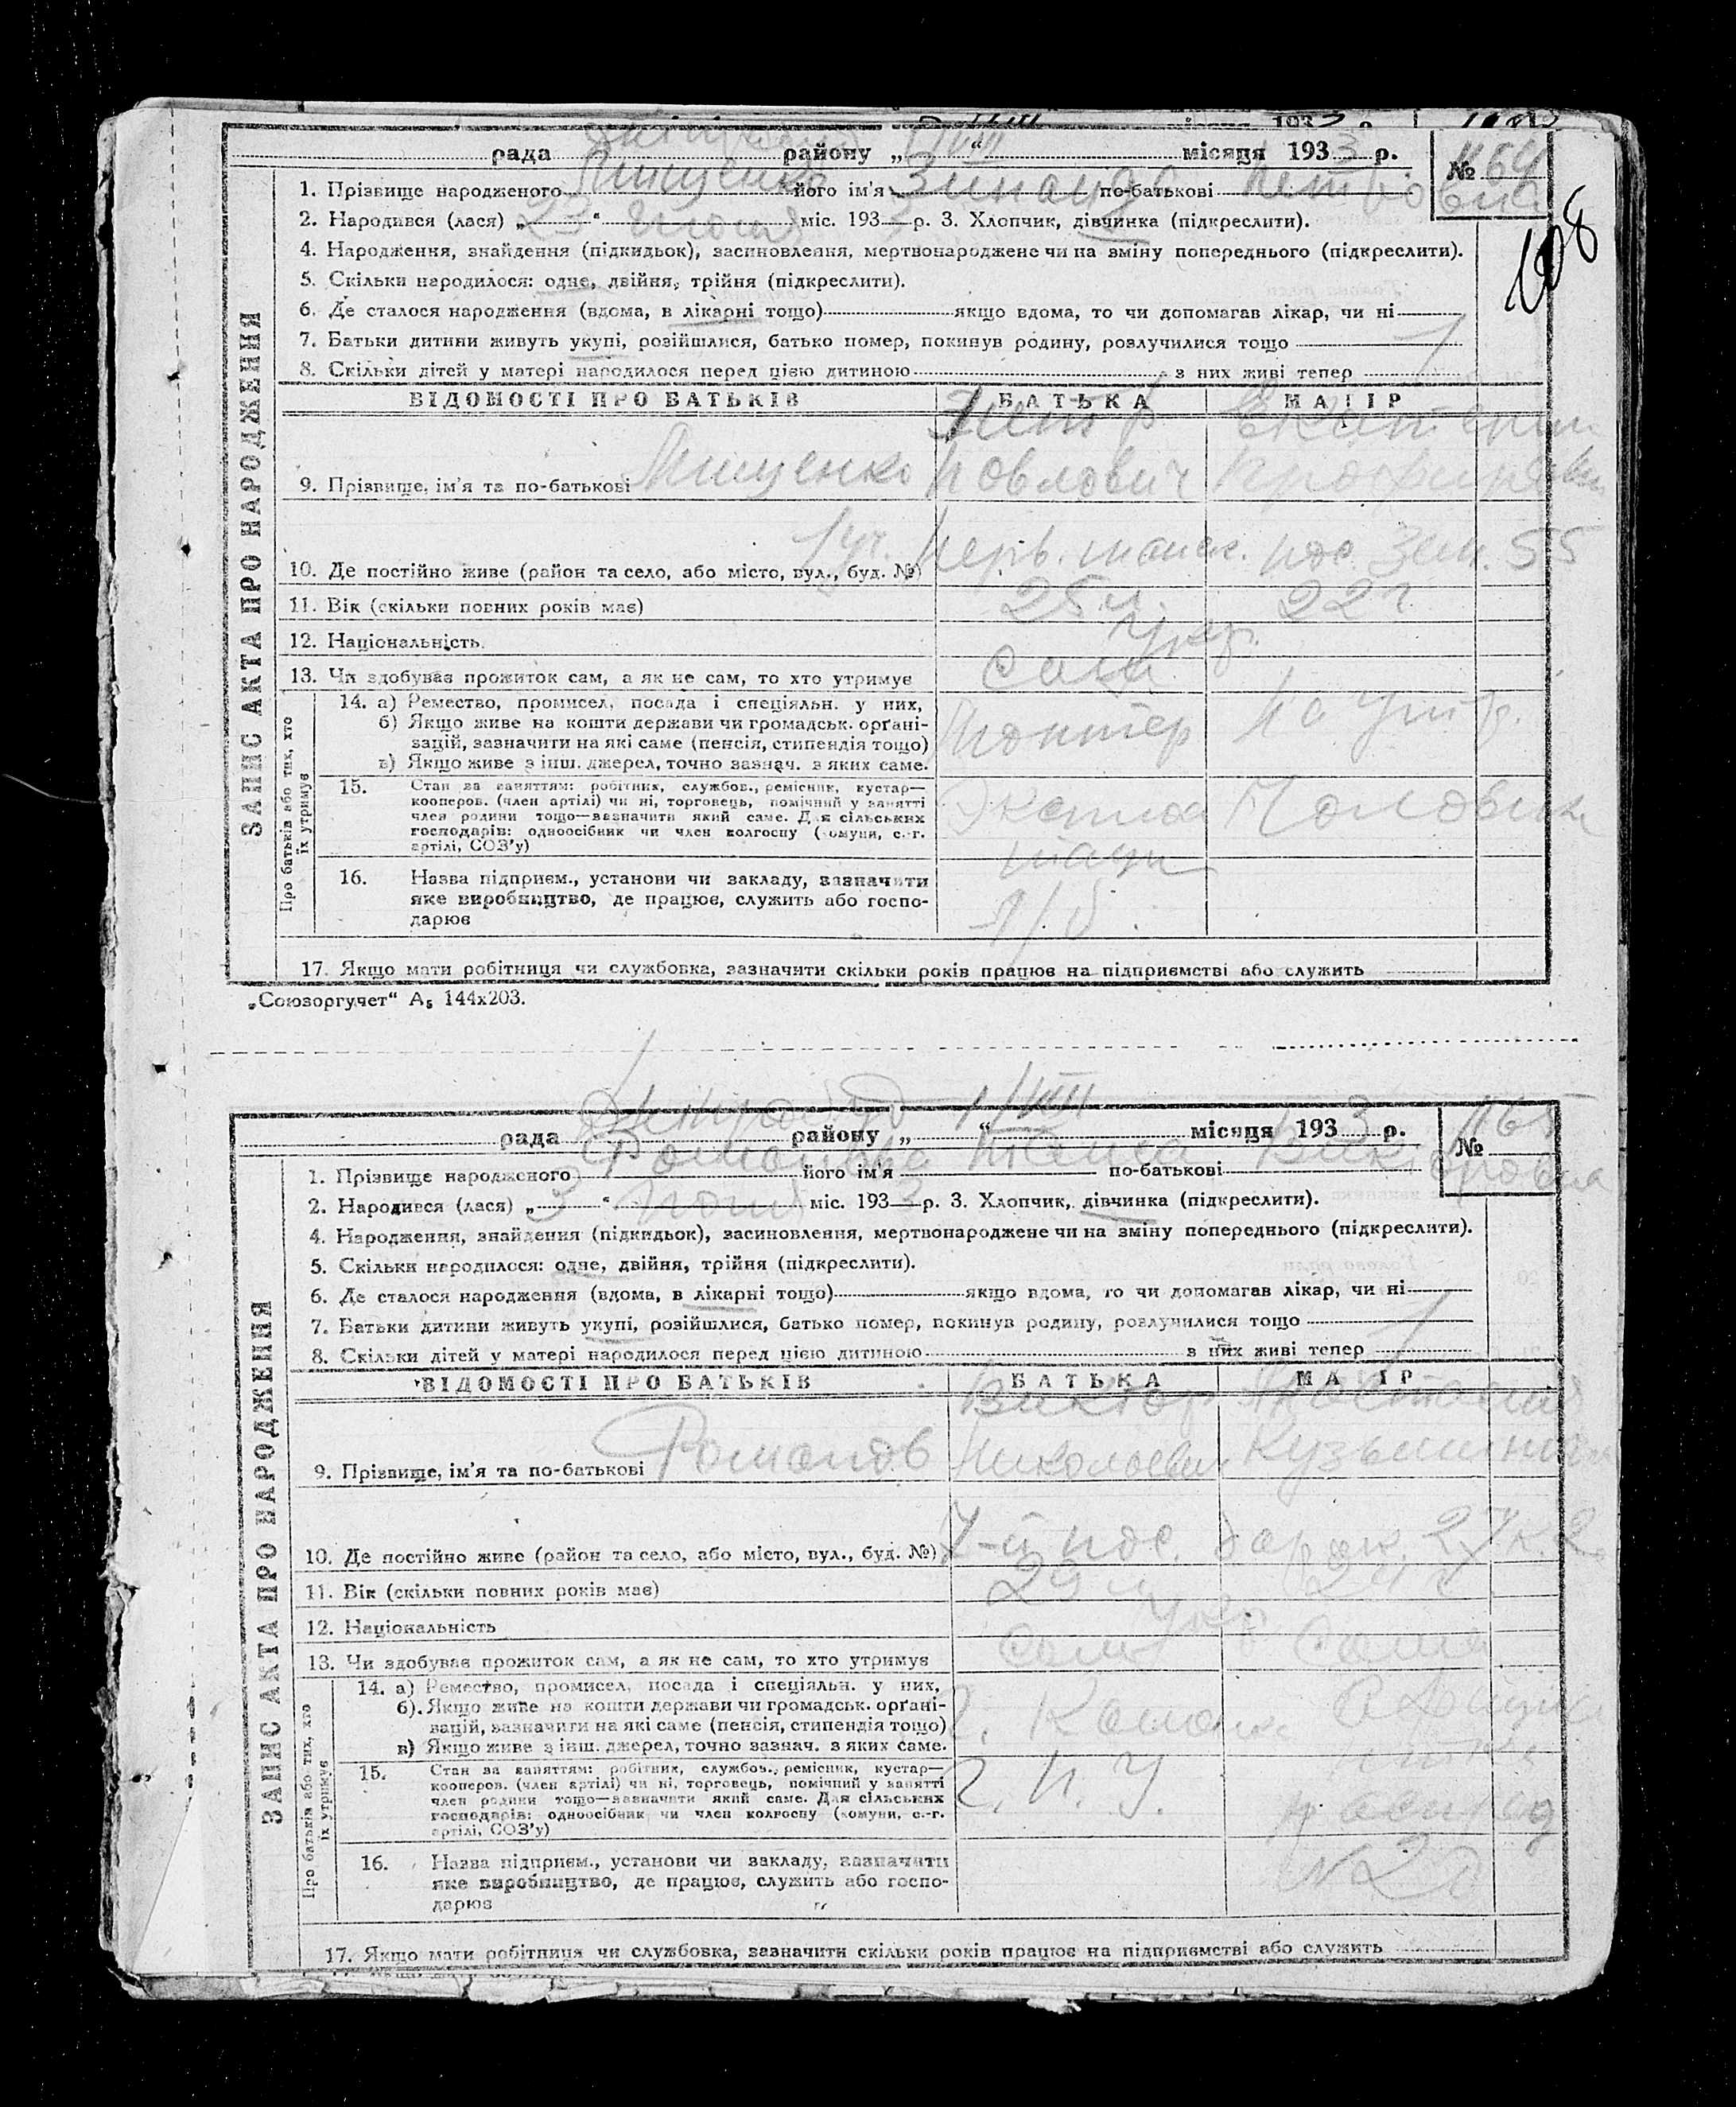 рада району „ 1/VIII “ місяця 1933 р. № 1164
108
ЗАПИС АКТА ПРО НАРОДЖЕННЯ
1. Прізвище народженого його ім'я Зинаида по-батькові Петровна
2. Народився (лася) „ 23 “ міс. 193 р. 3. Хлопчик, дівчинка (підкреслити).
4. Народження, знайдення (підкидьок), засиновлення, мертвонароджене чи на зміну попереднього (підкреслити).
5. Скільки народилося: одне, двійня, трійня (підкреслити).
6. Де сталося народження (вдома, в лікарні тощо) якщо вдома, то чи допомагав лікар, чи ні
7. Батьки дитини живуть укупі, розійшлися, батько помер, покинув родину, розлучилися тощо
8. Скільки дітей у матері народилося перед цією дитиною з них живі тепер
ВІДОМОСТІ ПРО БАТЬКІВ БАТЬКА МАТІР
Петр Екатерин
9. Прізвище, ім'я та по-батькові Павлович
10. Де постійно живе (район та село, або місто, вул., буд. №) пос. Зем. 55
11. Вік (скільки повних років має) 25 л. 22 г.
12. Національність Укр.
13. Чи здобуває прожиток сам, а як не сам, то хто утримує Сам
Про батьків або тих, хто їх утримує
14. а) Ремество, промисел, посада і спеціяльн. у них,
б) Якщо живе на кошти держави чи громадськ. орґані-
зацій, зазначити на які саме (пенсія, стипендія тощо) Монтер На утр.
в) Якщо живе з інш. джерел, точно зазнач. з яких саме.
15. Стан за заняттям: робітник, службов., ремісник, кустар—
кооперов. (член артілі) чи ні, торговець, помічний у занятті
член родини тощо—зазначити який саме. Для сільських
господарів: одноосібник чи член колгоспу (комуни, с.-г.
артілі, СОЗ'у)
16. Назва підприєм., установи чи закладу, зазначити
яке виробництво, де працює, служить або госпо-
дарює
17. Якщо мати робітниця чи службовка, зазначити скільки років працює на підприємстві або служить
„Союзоргучет“ А₅ 144х203.
рада району „ 1/VIII “ місяця 1933 р. № 1165
ЗАПИС АКТА ПРО НАРОДЖЕННЯ
1. Прізвище народженого Романова його ім'я по-батькові Викторовна
2. Народився (лася) „ 3 “ міс. 1933 р. 3. Хлопчик, дівчинка (підкреслити).
4. Народження, знайдення (підкидьок), засиновлення, мертвонароджене чи на зміну попереднього (підкреслити).
5. Скільки народилося: одне, двійня, трійня (підкреслити).
6. Де сталося народження (вдома, в лікарні тощо) якщо вдома, то чи допомагав лікар, чи ні
7. Батьки дитини живуть укупі, розійшлися, батько помер, покинув родину, розлучилися тощо
8. Скільки дітей у матері народилося перед цією дитиною з них живі тепер
ВІДОМОСТІ ПРО БАТЬКІВ БАТЬКА МАТІР
Виктор Анастасия
9. Прізвище, ім'я та по-батькові Романов Николаевич Кузьминична
10. Де постійно живе (район та село, або місто, вул., буд. №) 7-й пос. барак 27 к. 2
11. Вік (скільки повних років має) 29 л. 24 г.
12. Національність Укр.
13. Чи здобуває прожиток сам, а як не сам, то хто утримує Сам Сама
Про батьків або тих, хто їх утримує
14. а) Ремество, промисел, посада і спеціяльн. у них,
б) Якщо живе на кошти держави чи громадськ. орґані-
зацій, зазначити на які саме (пенсія, стипендія тощо)
в) Якщо живе з інш. джерел, точно зазнач. з яких саме.
15. Стан за заняттям: робітник, службов., ремісник, кустар—
кооперов. (член артілі) чи ні, торговець, помічний у занятті
член родини тощо—зазначити який саме. Для сільських Г. П. У.
господарів: одноосібник чи член колгоспу (комуни, с.-г.
артілі, СОЗ'у)
16. Назва підприєм., установи чи закладу, зазначити
яке виробництво, де працює, служить або госпо-
дарює
17. Якщо мати робітниця чи службовка, зазначити скільки років працює на підприємстві або служить